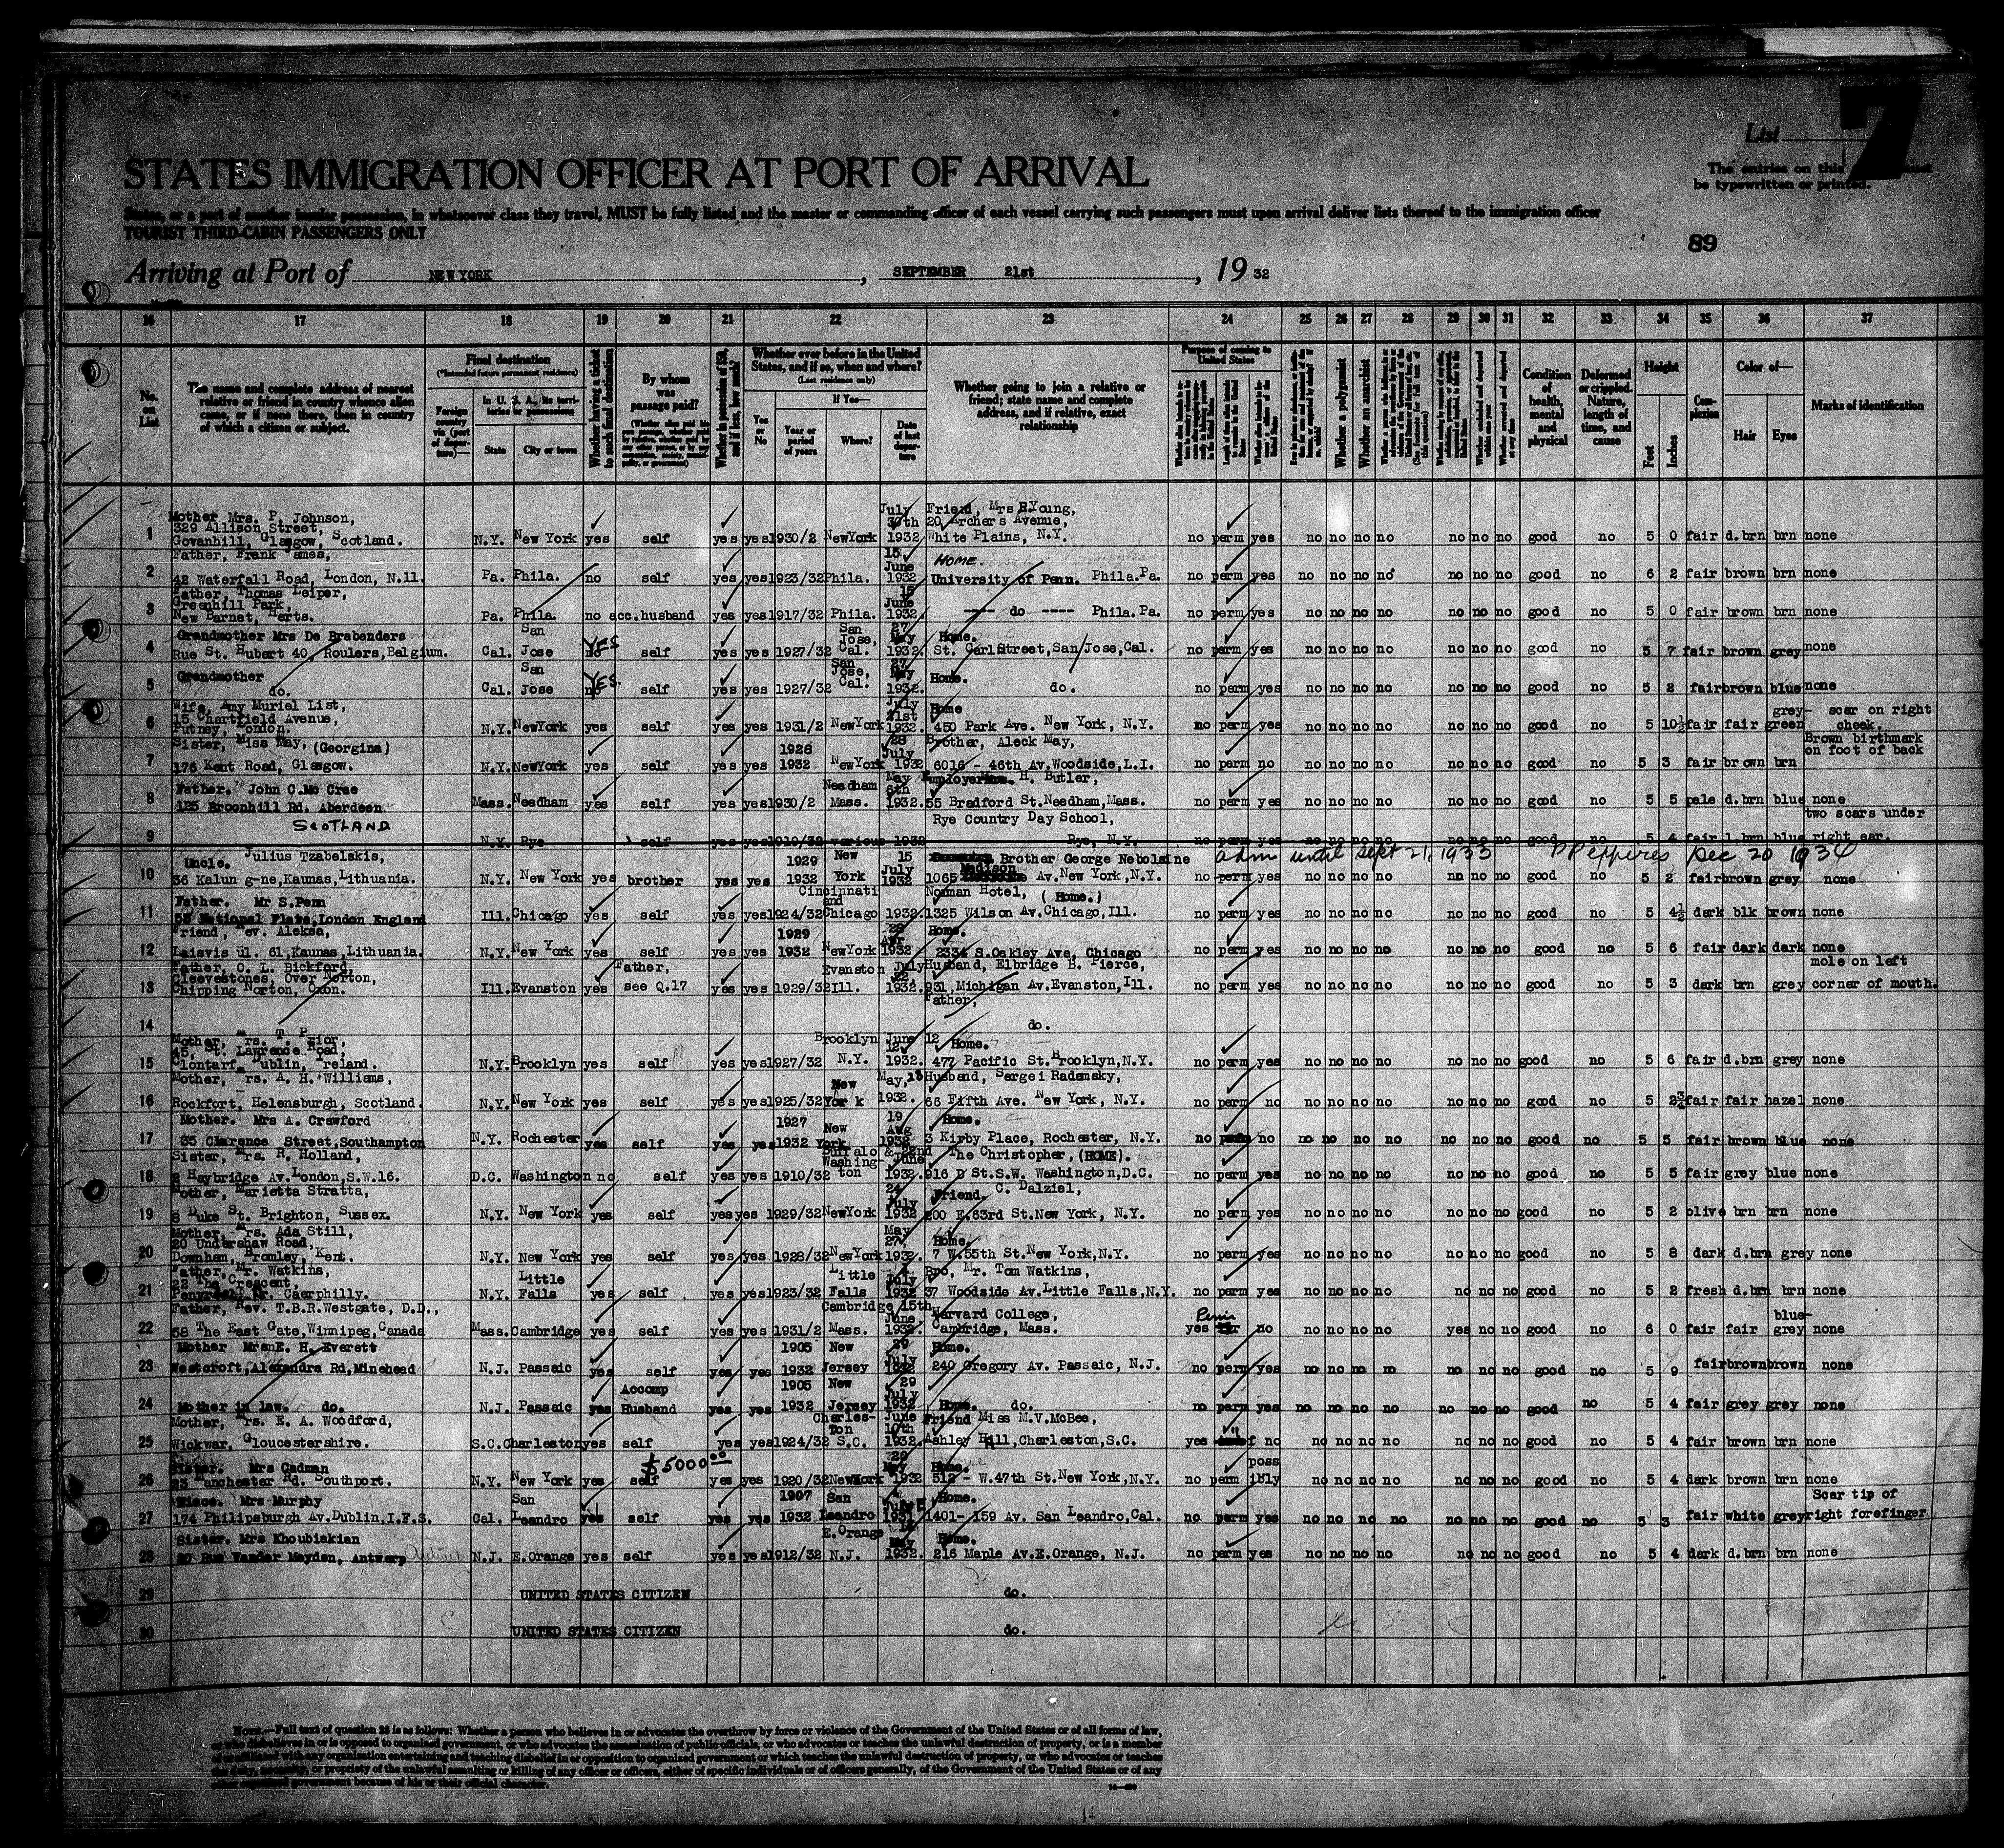 List
7
The entries on this
be typewritten or printed.
STATES IMMIGRATION OFFICER AT PORT OF ARRIVAL
States, or a part of another insular possession, in whatsoever class they travel, MUST be fully listed and the master or commanding officer of each vessel carrying such passengers must upon arrival deliver lists thereof to the immigration officer
TOURIST THIRD-CABIN PASSENGERS ONLY
89
Arriving at Port of NEW YORK, SEPTEMBER 21st, 1932
16 17 18 19 20 21 22 23 24 25 26 27 28 29 30 31 32 33 34 35 36 37
No. on List
The name and complete address of nearest relative or friend in country whence alien came, or if none there, then in country of which a citizen or subject.
Final destination
(*Intended future permanent residence)
Foreign country via (port of departure)—
In U. S. A., its territories or possessions
State
City or town
Whether having a ticket to such final destination
By whom was passage paid?
Whether in possession of $50, and if less, how much?
Whether ever before in the United States, and if so, when and where?
(Last residence only)
Yes or No
If Yes—
Year or period of years
Where?
Date of last departure
Whether going to join a relative or friend; state name and complete address, and if relative, exact relationship
Purpose of coming to United States
Whether a polygamist
Whether an anarchist
Condition of health, mental and physical
Deformed or crippled. Nature, length of time, and cause
Height
Feet
Inches
Complexion
Color of—
Hair
Eyes
Marks of identification
1 Mother Mrs. P. Johnson, 329 Allison Street, Govanhill, Glasgow, Scotland. N.Y. New York yes self yes yes 1930/2 NewYork July 30th 1932 Friend, Mrs R.Young, 20 Archers Avenue, White Plains, N.Y. no perm yes no no no no no no no good no 5 0 fair d.brn brn none
2 Father, Frank James, 42 Waterfall Road, London, N.11. Pa. Phila. no self yes yes 1923/32 Phila. 15 June 1932 HOME. University of Penn. Phila.Pa. no perm yes no no no no no no no good no 6 2 fair brown brn none
3 Father, Thomas Leiper, Greenhill Park, New Barnet, Herts. Pa. Phila. no acc.husband yes yes 1917/32 Phila. 15 June 1932. ---- do ---- Phila.Pa. no perm yes no no no no no no no good no 5 0 fair brown brn none
4 Grandmother Mrs De Brabanders Rue St. Hubert 40, Roulers, Belgium. Cal. San Jose no YES self yes yes 1927/32 San Jose, Cal. 27 May 1932. Home. St. Carl Street, San Jose, Cal. no perm yes no no no no no no no good no 5 7 fair brown grey none
5 Grandmother do. Cal. San Jose no YES. self yes yes 1927/32 San Jose, Cal. 27 May 1932. Home. do. no perm yes no no no no no no no good no 5 2 fair brown blue none
6 Wife, Amy Muriel List, 15 Chartfield Avenue, Putney, London. N.Y. NewYork yes self yes yes 1931/2 NewYork July 21st 1932 Home 450 Park Ave. New York, N.Y. no perm yes no no no no no no no good no 5 10½ fair fair grey-green scar on right cheek.
7 Sister, Miss May, (Georgina) 176 Kent Road, Glasgow. N.Y. NewYork yes self yes yes 1928 1932 NewYork 28 July 1932 Brother, Aleck May, 6016 - 46th Av.Woodside, L.I. no perm no no no no no no no no good no 5 3 fair brown brn Brown birthmark on foot of back
8 Father. John C.Mc Crae 125 Broonhill Rd. Aberdeen SCOTLAND Mass. Needham yes self yes yes 1930/2 Needham Mass. May 6th 1932. Employer H. Butler, 55 Bradford St.Needham, Mass. no perm yes no no no no no no no good no 5 5 pale d.brn blue none
9 N.Y. Rye self yes yes 1919/32 various 1932 Rye Country Day School, Rye, N.Y. no perm yes no no no no no no no good no 5 4 fair l.brn blue two scars under right ear.
adm until Sept 21, 1933 PP expires Dec 20 1934
10 Uncle. Julius Tzabelskis, 36 Kalun g-ne, Kaunas, Lithuania. N.Y. New York yes brother yes yes 1929 1932 New York 15 July 1932 Brother George Nebolsine 1065 Madison Av. New York, N.Y. no perm yes no no no no no no no good no 5 2 fair brown grey none
11 Father. Mr S.Penn 55 National Flats, London England Ill. Chicago yes self yes yes 1924/32 Cincinnati and Chicago 1932. Norman Hotel, (Home.) 1325 Wilson Av.Chicago, Ill. no perm yes no no no no no no no good no 5 4½ dark blk brown none
12 Friend, Rev. Aleksa, Laisvis ul. 61, Kaunas, Lithuania. N.Y. New York yes self yes yes 1929 1932 NewYork 28 Apr 1932 Home. 2334 S.Oakley Ave. Chicago no perm yes no no no no no no no good no 5 6 fair dark dark none
13 Father, O. L. Bickford, Cleevestones, Over Norton, Chipping Norton, Oxon. Ill. Evanston yes Father, see Q.17 yes yes 1929/32 Evanston Ill. July 22 1932. Husband, Elbridge B. Pierce, 931 Michigan Av. Evanston, Ill. no perm yes no no no no no no no good no 5 3 dark brn grey mole on left corner of mouth.
14 Father, do.
15 Mother, Mrs. T. Prior, 45, St. Lawrence Road, Clontarf, Dublin, Ireland. N.Y. Brooklyn yes self yes yes 1927/32 Brooklyn N.Y. June 12 1932. Home. 477 Pacific St. Brooklyn, N.Y. no perm yes no no no no no no no good no 5 6 fair d.brn grey none
16 Mother, Mrs. A. H. Williams, Rockfort, Helensburgh, Scotland. N.Y. New York yes self yes yes 1925/32 New York May, 28 1932. Husband, Sergei Radamsky, 66 Fifth Ave. New York, N.Y. no perm no no no no no no no no good no 5 2¾ fair fair hazel none
17 Mother. Mrs A. Crawford 35 Clarence Street, Southampton N.Y. Rochester yes self yes yes 1927 1932 New York 19 Aug 1932 Home. 3 Kirby Place, Rochester, N.Y. no perm no no no no no no no no good no 5 5 fair brown blue none
18 Sister, Mrs. R. Holland, 8 Haybridge Av.London, S.W.16. D.C. Washington no self yes yes 1910/32 Buffalo & Washington 22nd June 1932. The Christopher, (HOME). 916 D St.S.W. Washington, D.C. no perm yes no no no no no no no good no 5 5 fair grey blue none
19 Mother, Marietta Stratta, 8 Duke St. Brighton, Sussex. N.Y. New York yes self yes yes 1929/32 NewYork 24 July 1932 Friend. C. Dalziel, 200 E.63rd St.New York, N.Y. no perm yes no no no no no no no good no 5 2 olive brn brn none
20 Mother, Mrs. Ada Still, 20 Undershaw Road, Downham, Bromley, Kent. N.Y. New York yes self yes yes 1928/32 NewYork May 27, 1932. Home. 7 W.55th St.New York, N.Y. no perm yes no no no no no no no good no 5 8 dark d.brn grey none
21 Father, Mr. Watkins, 22 The Crescent, Nr. Caerphilly. N.Y. Little Falls yes self yes yes 1923/32 Little Falls July 1932 Bro, Mr. Tom Watkins, 37 Woodside Av.Little Falls, N.Y. no perm yes no no no no no no no good no 5 2 fresh d.brn brn none
22 Father, Rev. T.B.R.Westgate, D.D., 58 The East Gate, Winnipeg, Canada Mass. Cambridge yes self yes yes 1931/2 Cambridge Mass. 15th June 1932. Harvard College, Cambridge, Mass. yes Perm no no no no no yes no no good no 6 0 fair fair blue-grey none
23 Mother Mrs E. H. Everett Westcroft, Alexandra Rd, Minehead N.J. Passaic yes self yes yes 1905 1932 New Jersey 29 July 1932 Home. 240 Gregory Av. Passaic, N.J. no perm yes no no no no no no no good no 5 9 fair brown brown none
24 Mother in law. do. N.J. Passaic yes Accomp Husband yes yes 1905 1932 New Jersey 29 July 1932 Home. do. no perm yes no no no no no no no good no 5 4 fair grey grey none
25 Mother, Mrs. E. A. Woodford, Wickwar, Gloucestershire. S.C. Charleston yes self yes yes 1924/32 Charleston S.C. June 10th 1932. Friend Miss M.V.McBee, Ashley Hill, Charleston, S.C. yes no no no no no no no no good no 5 4 fair brown brn none
$5000.00
26 Sister. Mrs Cadman 23 Manchester Rd. Southport. N.Y. New York yes self yes yes 1920/32 NewYork 20 May 1932 Home. 512 - W.47th St.New York, N.Y. no perm possibly no no no no no no no good no 5 4 dark brown brn none
27 Niece. Mrs Murphy 174 Philipsburgh Av.Dublin, I.F.S. Cal. San Leandro yes self yes yes 1907 1932 San Leandro 1931 Home. 1401- 159 Av. San Leandro, Cal. no perm yes no no no no no no no good no 5 3 fair white grey Scar tip of right forefinger
28 Sister. Mrs Khoubiakian 20 Rue Vander Meyden, Antwerp N.J. E.Orange yes self yes yes 1912/32 E.Orange N.J. 14 May 1932. Home. 216 Maple Av.E.Orange, N.J. no perm yes no no no no no no no good no 5 4 dark d.brn brn none
29 UNITED STATES CITIZEN do.
30 UNITED STATES CITIZEN do.
NOTE.—Full text of question 28 is as follows: Whether a person who believes in or advocates the overthrow by force or violence of the Government of the United States or of all forms of law,
or who disbelieves in or is opposed to organized government, or who advocates the assassination of public officials, or who advocates or teaches the unlawful destruction of property, or is a member
of or affiliated with any organization entertaining and teaching disbelief in or opposition to organized government or which teaches the unlawful destruction of property, or who advocates or teaches
the duty, necessity, or propriety of the unlawful assaulting or killing of any officer or officers, either of specific individuals or of officers generally, of the Government of the United States or of any
other organized government because of his or their official character.